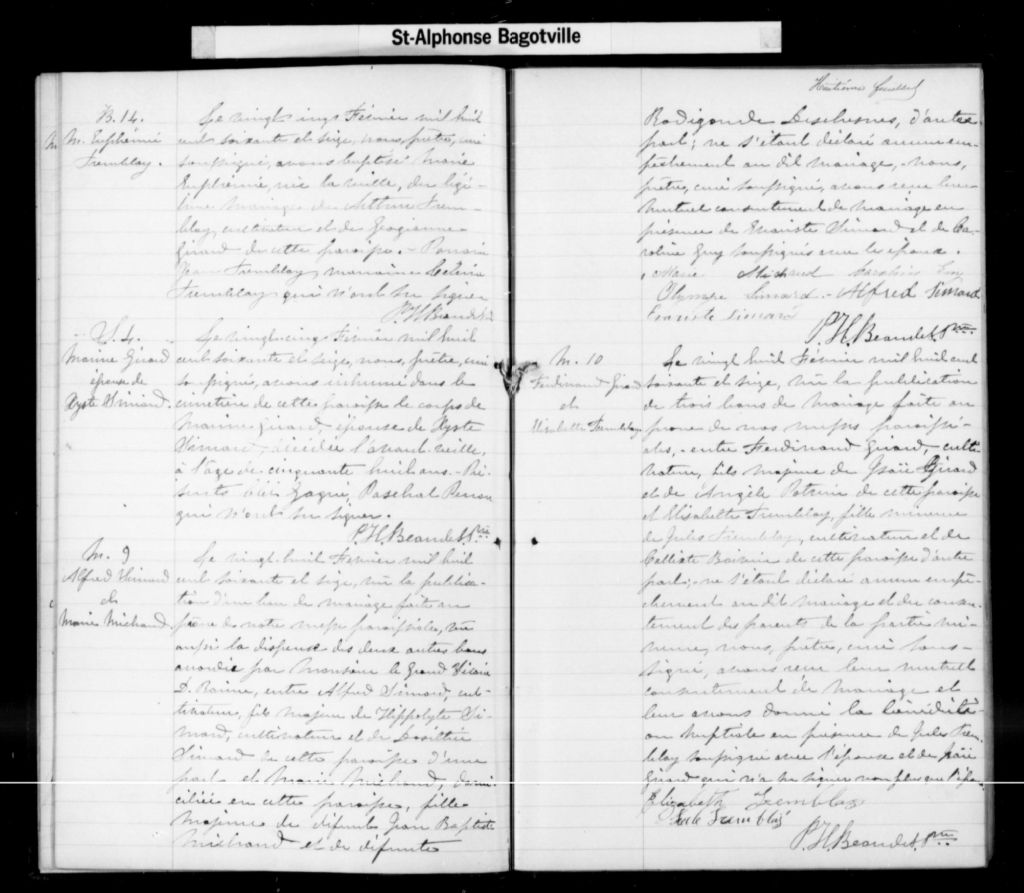 St-Alphonse Bagotville
B. 14.
M. Euphémie
Tremblay.
Le vingt cinq Février mil huit
cent soixante et seize, nous, prêtre, curé
soussigné, avons baptisé Marie
Euphémie, née la veille, du légi-
time mariage de Arthur Trem-
blay, cultivateur et de Georgianne
Girard de cette paroisse. - Parrain
Jean Tremblay, marraine Lelina
Tremblay qui n'ont su signer
P.H. Beaudet
S. 4.
Marine Girard
épouse de
Xyste Simard.
Le vingt-cinq Février mil huit
cent soixante et seize, nous, prêtre, curé
soussigné, avons inhumé dans le
cimetière de cette paroisse le corps de
Marine Girard, épouse de Xyste
Simard, décédée l'avant-veille,
à l'âge de cinquante huit ans. - Pré-
sents Gagné, Paschal Perron
qui n'ont su signer.
P.H. Beaudet Ptre
M. 9
Alfred Simard
et
Marie Michaud.
Le vingt-huit Février mil huit
cent soixante et seize, vu la publica-
tion d'un ban de mariage faite au
prône de notre messe paroissiale, vu
aussi la dispense des deux autres bans
accordée par Monsieur le Grand Vicaire
D. Racine, entre Alfred Simard, cul-
tivateur, fils majeur de Hippolyte Si-
mard, cultivateur et de
Simard de cette paroisse d'une
part et Marie Michaud, domi-
ciliée en cette paroisse, fille
majeure de défunt Jean Baptiste
Michaud et de défunte
Huitième feuillet
Radigonde Deschesnes, d'autre
part; ne s'étant déclaré aucun em-
pêchement au dit mariage, nous,
prêtre, curé soussigné, avons reçu leur
mutuel consentement de mariage en
présence de Evariste Simard et de Ca-
roline Guy soussignés avec les époux.
Marie Michaud
Olympe Simard - Alfred Simard
Evariste Simard
P.H. Beaudet Ptre
M. 10
Ferdinand Girard
et
Elisabette Tremblay
Le vingt huit Février mil huit cent
soixante et seize, vu la publication
de trois bans de mariage faite au
prône de nos messes paroissi-
ales, entre Ferdinand Girard, culti-
vateur, fils majeur de Isaïe Girard
et de Angèle Potvin de cette paroisse
et Elisabette Tremblay, fille mineure
de Jules Tremblay, cultivateur et de
Calliste Boivin de cette paroisse d'autre
part; ne s'étant déclaré aucun empê-
chement au dit mariage et du consen-
tement des parents de la partie mi-
neure, nous, prêtre, curé sous-
signé, avons reçu leur mutuel
consentement de mariage et
leur avons donné la bénédicti-
on nuptiale en présence de Jules Trem-
blay soussigné avec l'épouse et de Isaïe
Girard qui n'a su signer non plus que l'époux
Elizabeth Tremblay
Jule Tremblay
P.H. Beaudet Ptre